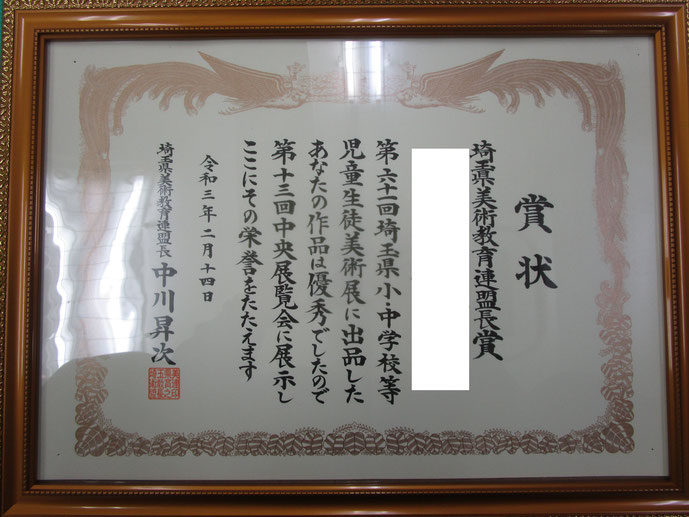 賞状
埼玉県美術教育連盟長賞
第六十一回埼玉県小・中学校等
児童生徒美術展に出品した
あなたの作品は優秀でしたので
第十三回中央展覧会に展示し
ここにその栄誉をたたえます
令和三年二月十四日
埼玉県美術教育連盟長 中川昇次